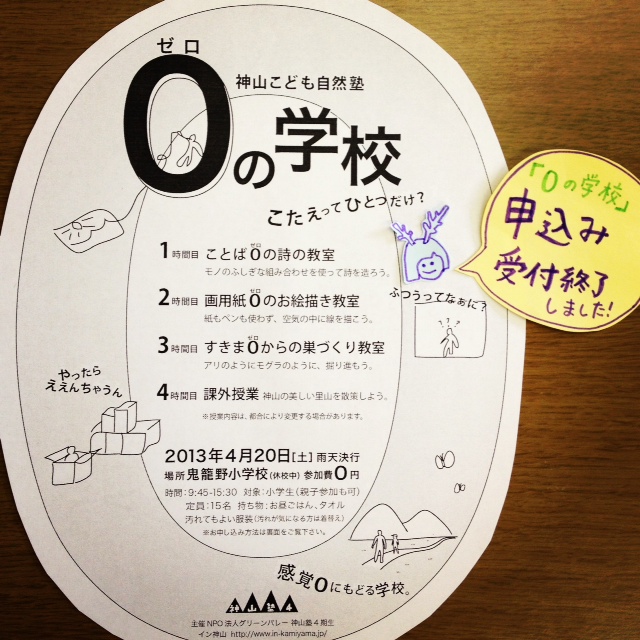 ゼロ
神山こども自然塾
0の学校
こたえってひとつだけ?
「0の学校」
申込み
受付終了
しました!
1時間目 ことば0の詩の教室
ゼロ
モノのふしぎな組み合わせを使って詩を造ろう。
ふつうってなぁに?
2時間目 画用紙0のお絵描き教室
ゼロ
紙もペンも使わず、空気の中に線を描こう。
???
3時間目 すきま0からの巣づくり教室
ゼロ
アリのようにモグラのように、掘り進もう。
やったら
ええんちゃうん
4時間目 課外授業 神山の美しい里山を散策しよう。
※授業内容は、都合により変更する場合があります。
2013年4月20日[土] 雨天決行
場所 鬼籠野小学校(休校中) 参加費0円
時間:9:45-15:30 対象:小学生(親子参加も可)
定員:15名 持ち物:お昼ごはん、タオル
汚れてもよい服装(汚れが気になる方は着替え)
※お申し込み方法は裏面をご覧下さい。
感覚0にもどる学校。
神山塾4
主催 NPO法人グリーンバレー 神山塾4期生
イン神山 http://www.in-kamiyama.jp/